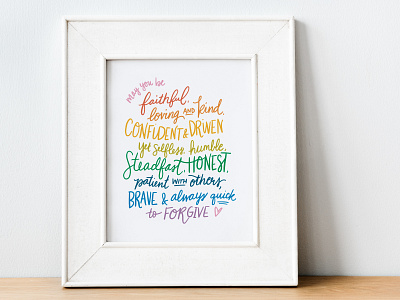 may you be
faithful,
loving AND kind,
CONFIDENT & DRIVEN
yet selfless, humble,
Steadfast, HONEST,
patient WITH others,
BRAVE & always quick
to FORGIVE